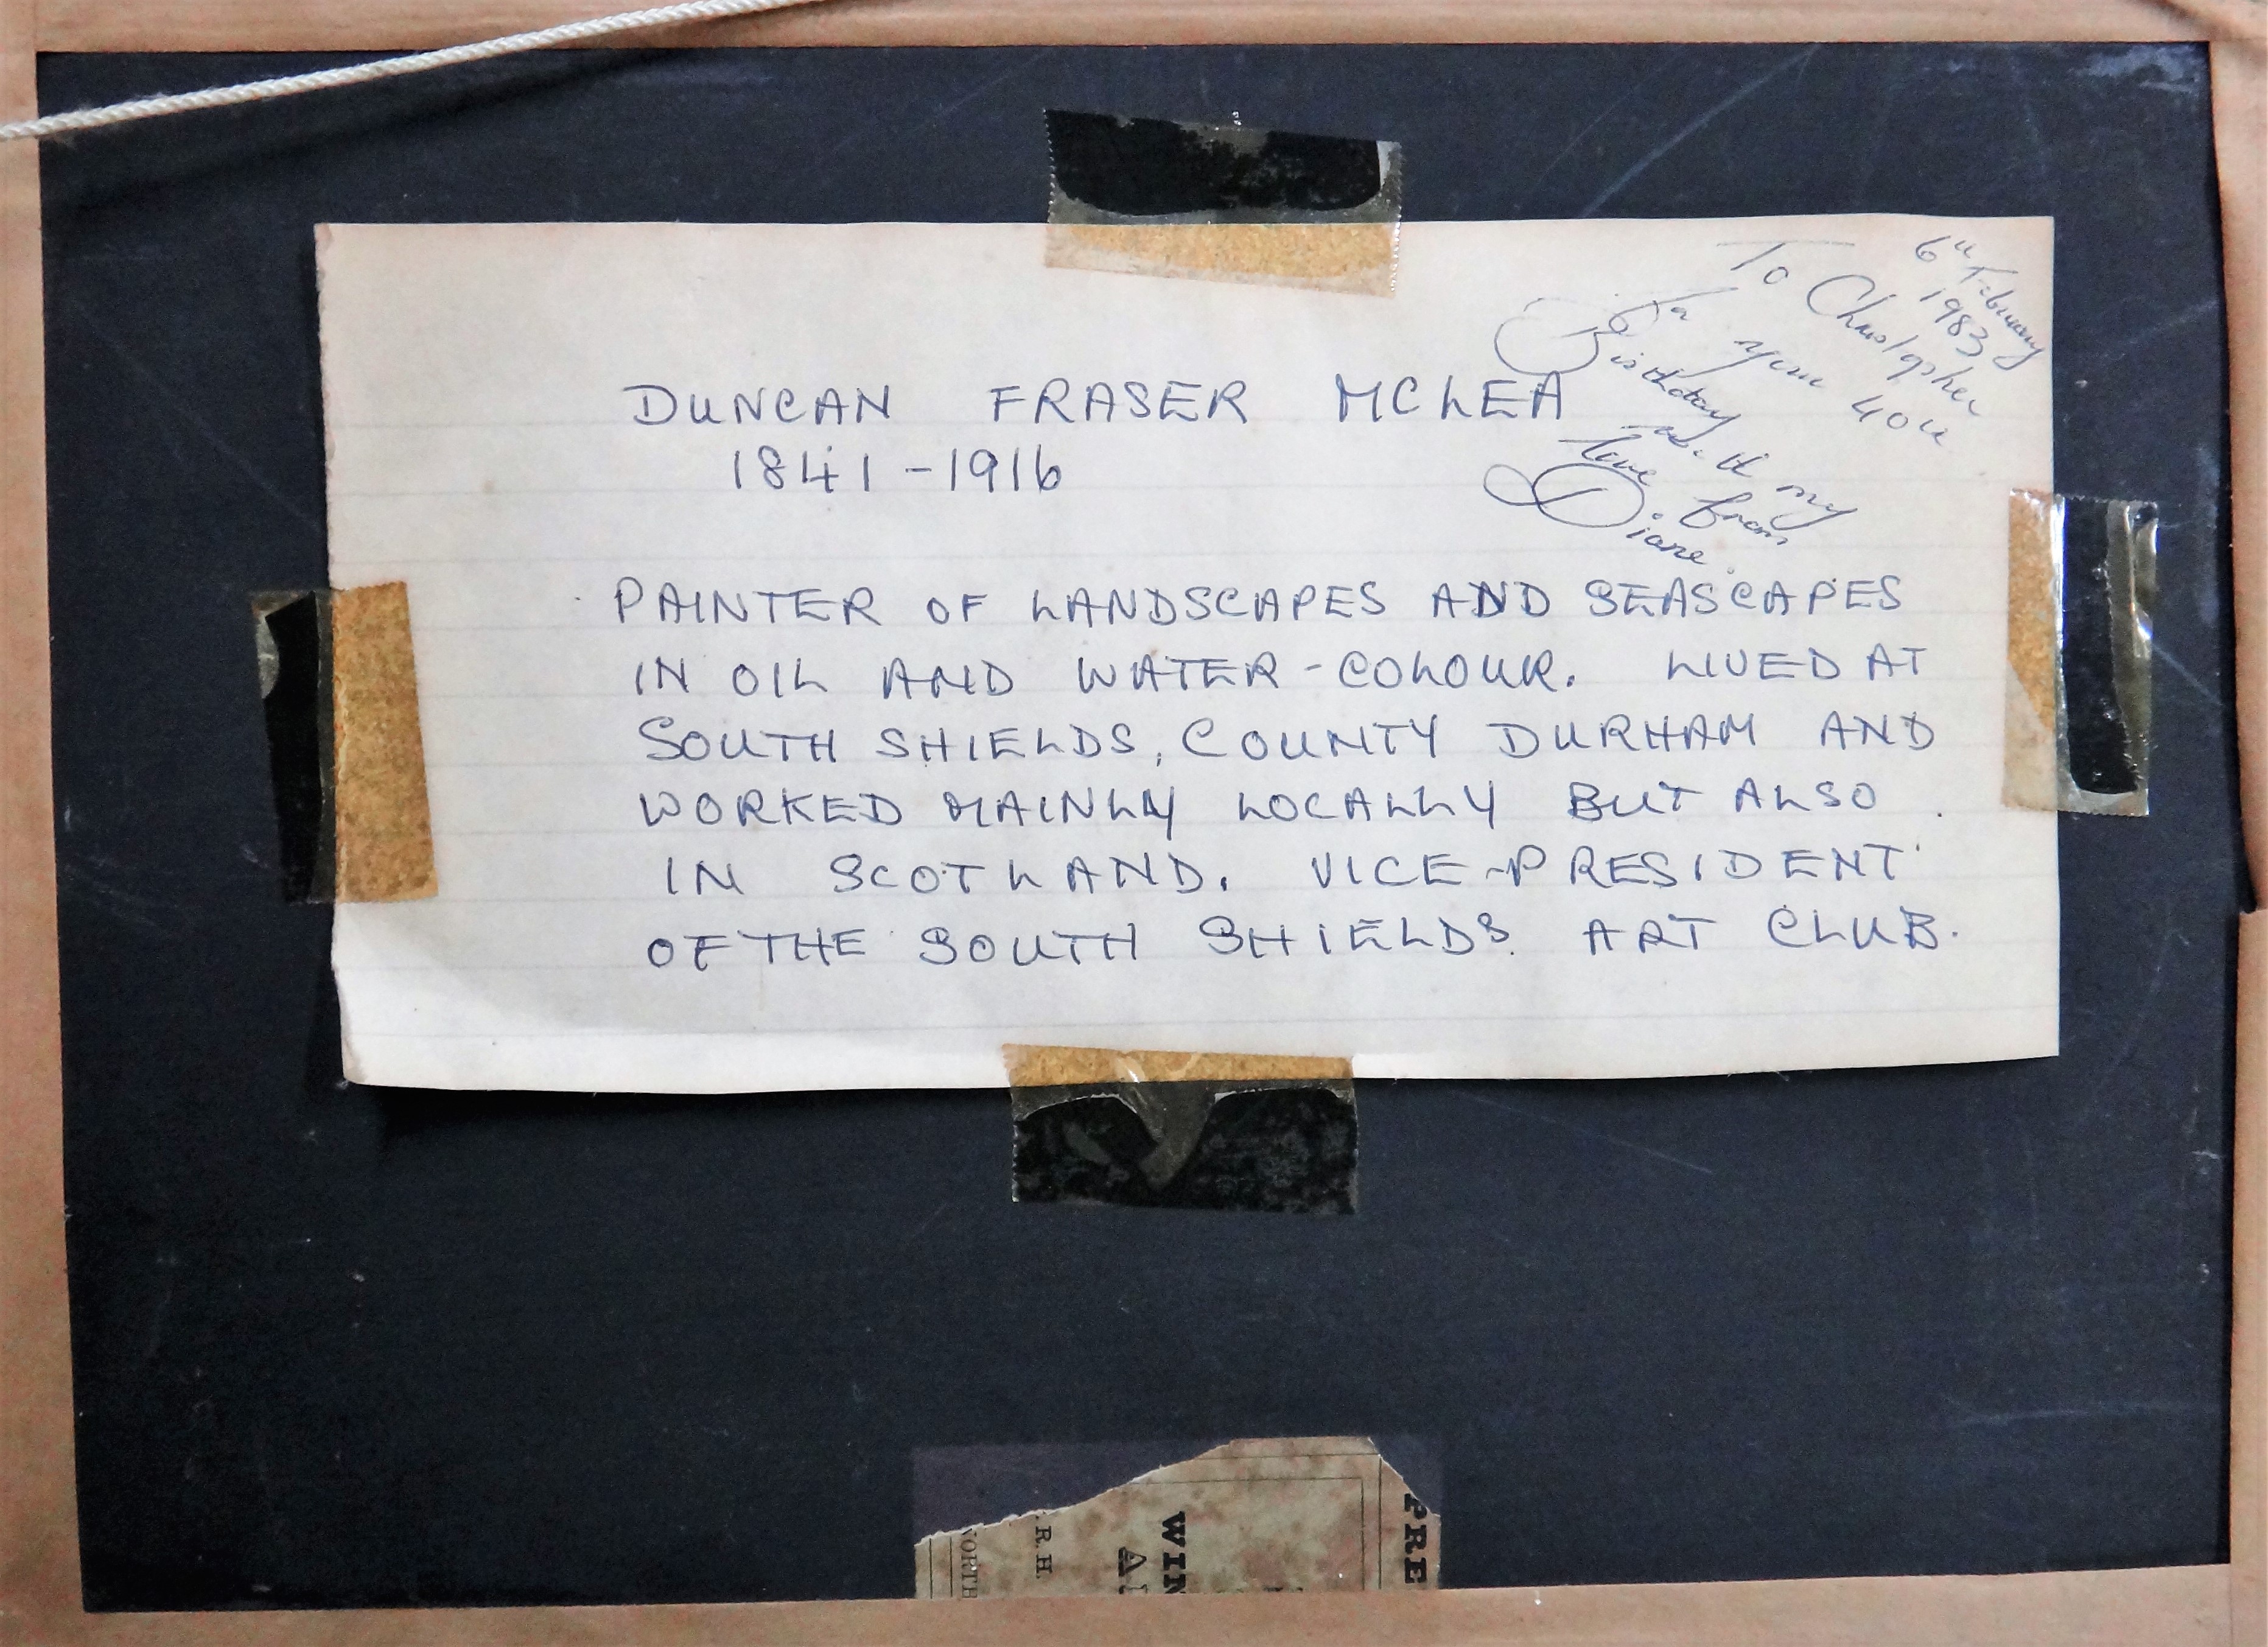 6th February
1983
To Christopher
For your 40th
Birthday
with my
love from
Diane
DUNCAN FRASER MCLEA
1841-1916
PAINTER OF LANDSCAPES AND SEASCAPES
IN OIL AND WATER-COLOUR. LIVED AT
SOUTH SHIELDS, COUNTY DURHAM AND
WORKED MAINLY LOCALLY BUT ALSO
IN SCOTLAND. VICE-PRESIDENT
OF THE SOUTH SHIELDS ART CLUB.
PRE
WIN
A
R.H.
NORTH